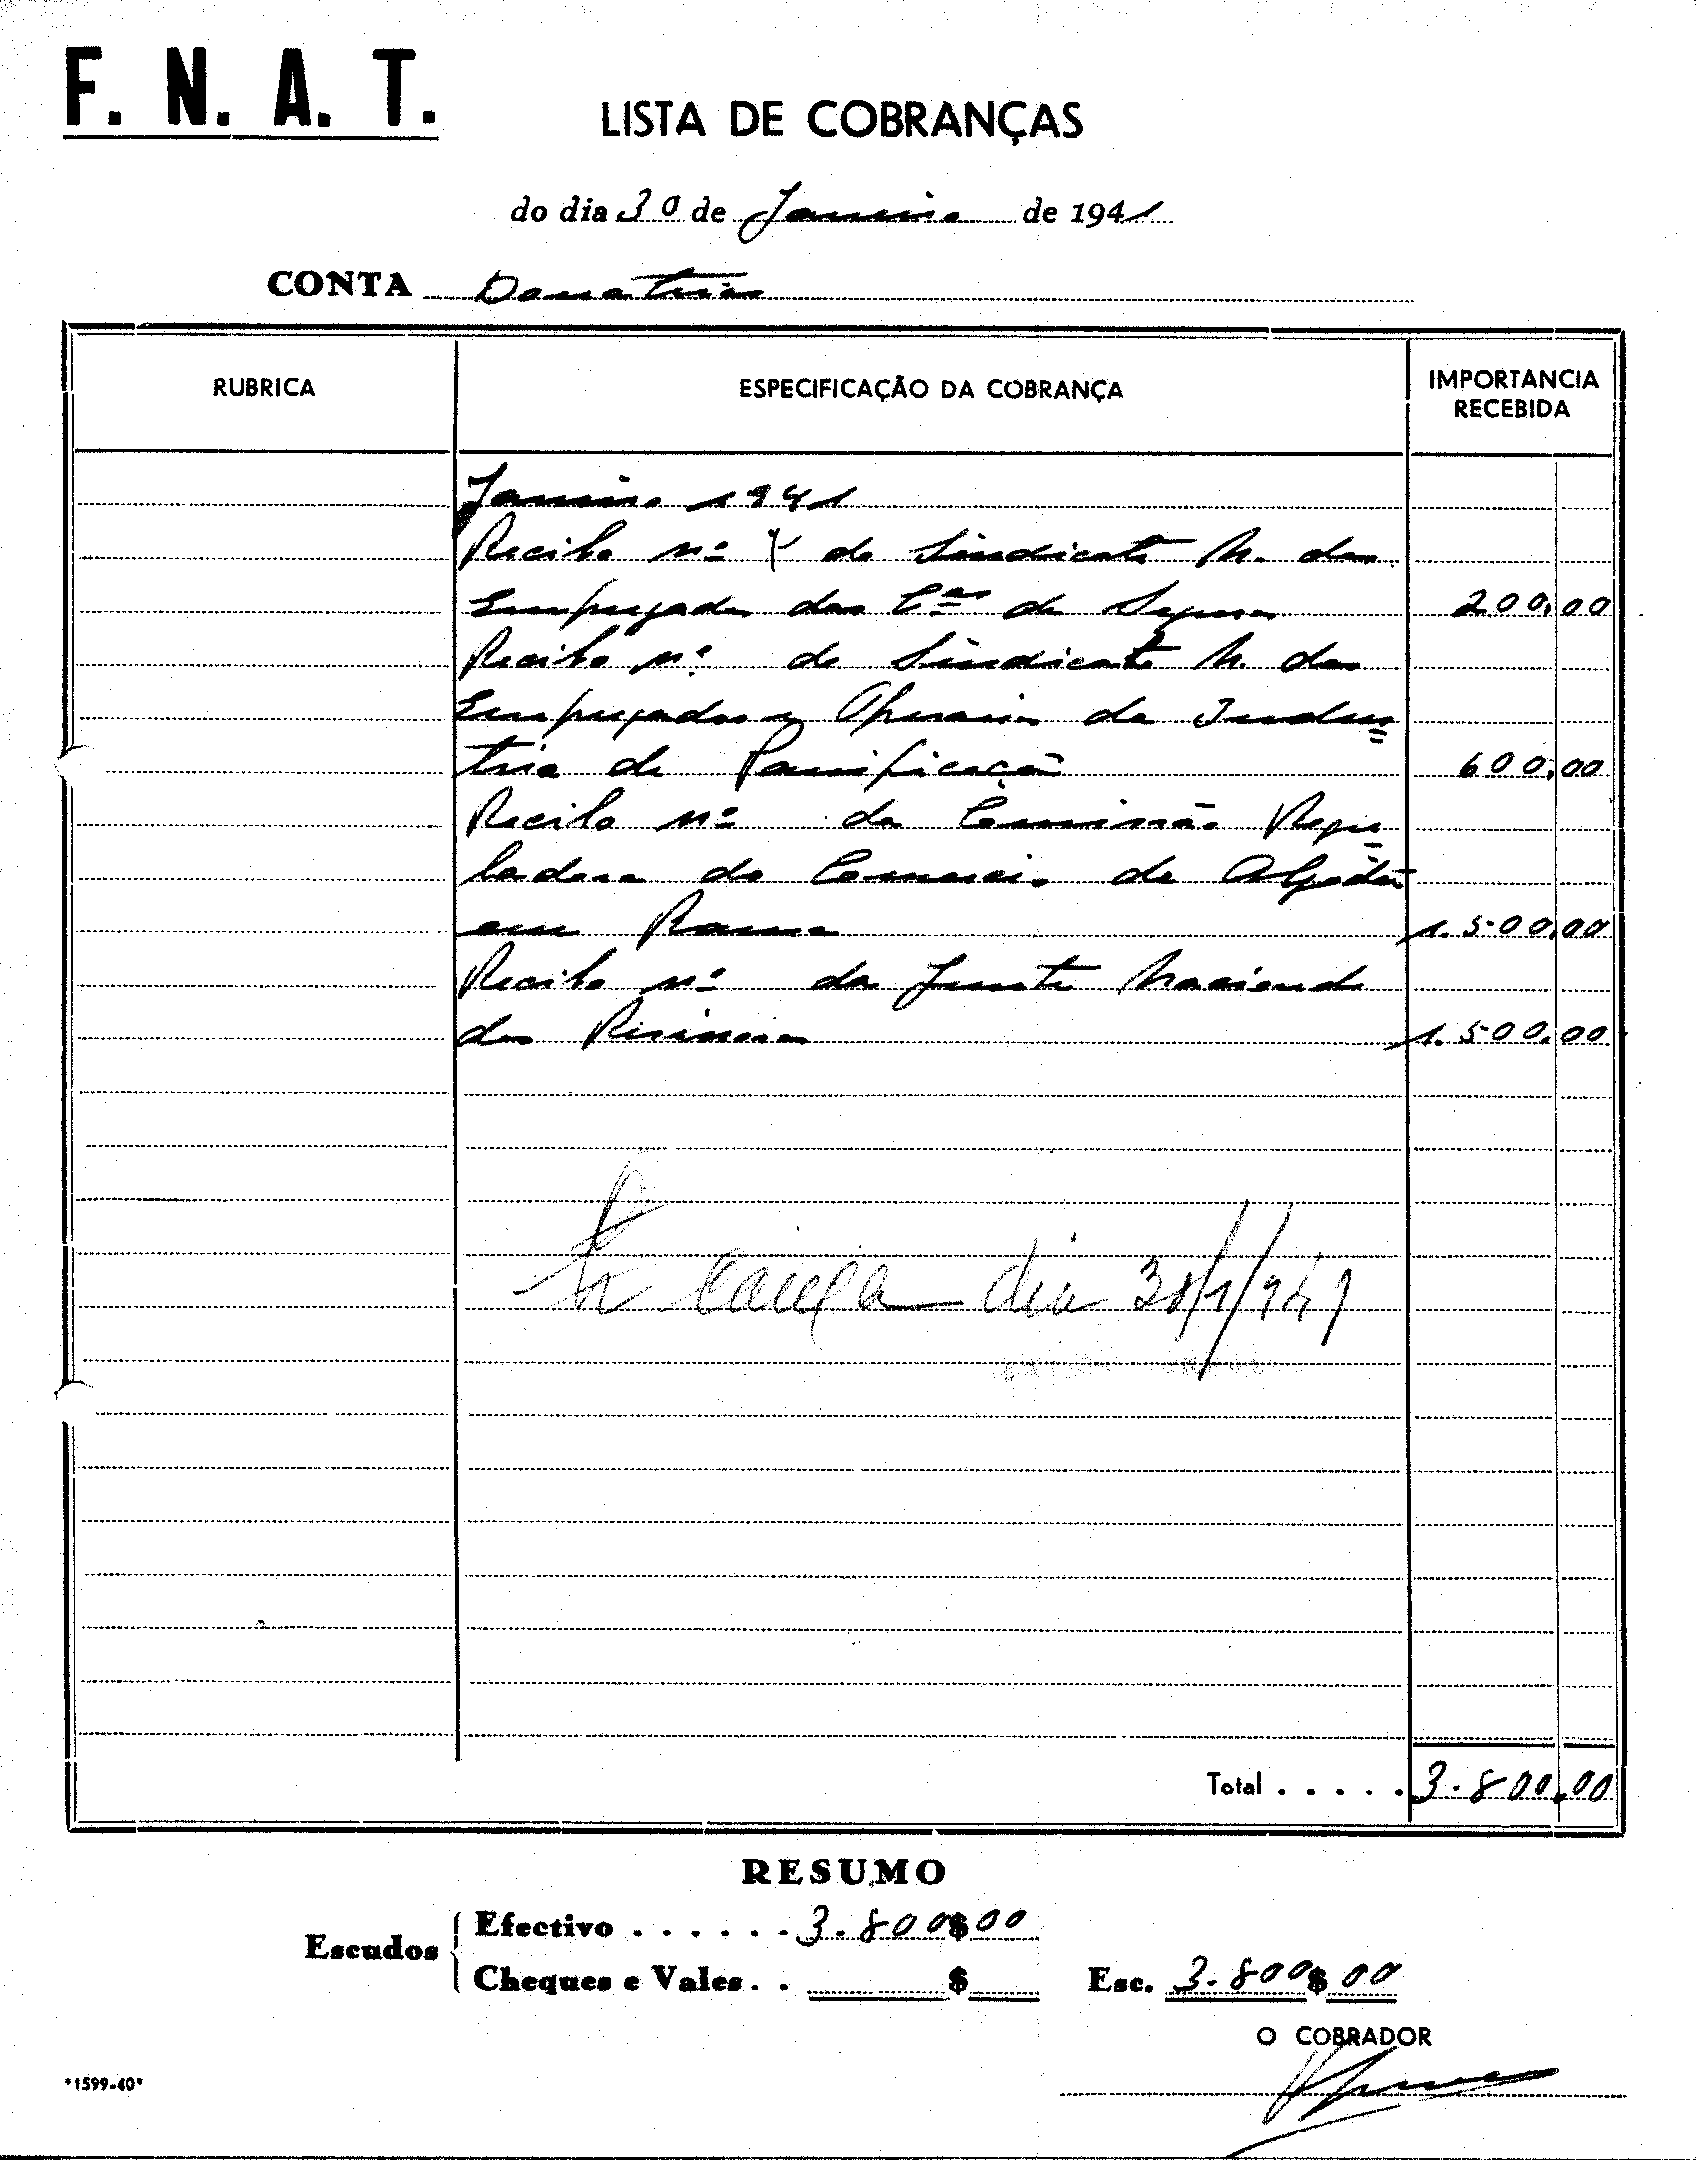 F. N. A. T.
LISTA DE COBRANÇAS
do dia 30 de Janeiro de 1941
CONTA Donativos
RUBRICA ESPECIFICAÇÃO DA COBRANÇA IMPORTANCIA RECEBIDA
Janeiro 1941
Recibo nº do Sindicato N. dos
Empregados das Cas de Seguros 200,00
Recibo nº do Sindicato N. dos
Empregados e Operarios da Indus=
tria de Panificação 600,00
Recibo nº da Comissão Regu=
ladora do Comercio de Algodão
em Rama 1.500,00
Recibo nº da Junta Nacional
dos Resinosos 1.500,00
dia 30/1/941
Total . . . . . 3.800,00
RESUMO
Escudos
Efectivo . . . . . . 3.800$00
Cheques e Vales . . $
Esc. 3.800$00
O COBRADOR
*1599-40*